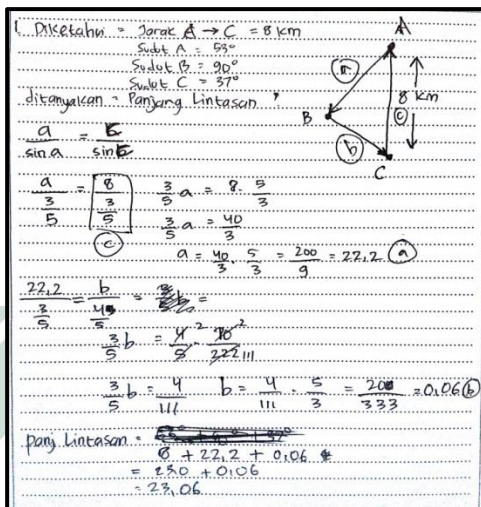 1. Diketahui = Jarak A → C = 8 km
Sudut A = 53°
Sudut B = 90°
Sudut C = 37°
ditanyakan = Panjang Lintasan ?
A
B
C
8 km
a
b
c
a/sin a = c/sin c
a/(3/5) = 8/(3/5)
c
3/5 a = 8 . 5/3
3/5 a = 40/3
a = 40/3 . 5/3 = 200/9 = 22,2 a
22,2/(3/5) = b/(4/5) =
3/5 b = 4/5 . 10/222 2 2 111
3/5 b = 4/111 b = 4/111 . 5/3 = 20/333 = 0,06 b
panj Lintasan =
8 + 22,2 + 0,06
= 230 + 0,06
= 23,06